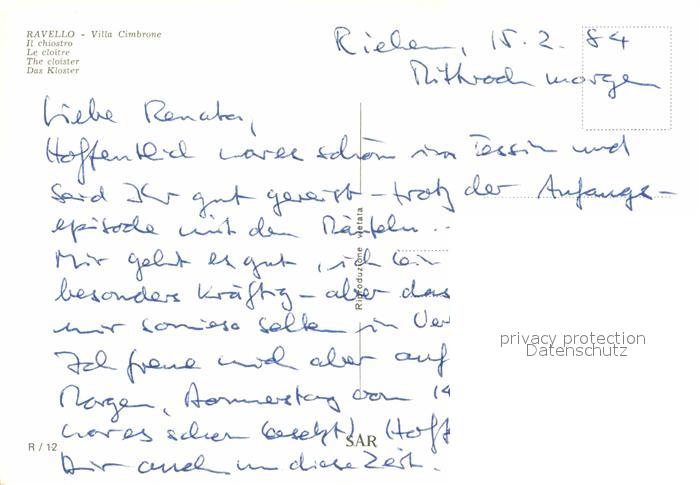 RAVELLO - Villa Cimbrone
Il chiostro
Le cloître
The cloister
Das Kloster
Riehen, 15.2.84
Mittwoch morgen
Liebe Renata,
Hoffentlich war es schön im Tessin und
seid Ihr gut gereist - trotz der Anfangs-
episode mit den Mänteln..
Mir geht es gut, ich bin
besonders kräftig - aber das
mir sowieso selten in Ver
Ich freue mich aber auf
Morgen, Donnerstag von 14
war es schon besetzt) (Hoff
Dir auch um diese Zeit.
Riproduzione vietata
privacy protection
Datenschutz
R / 12
SAR